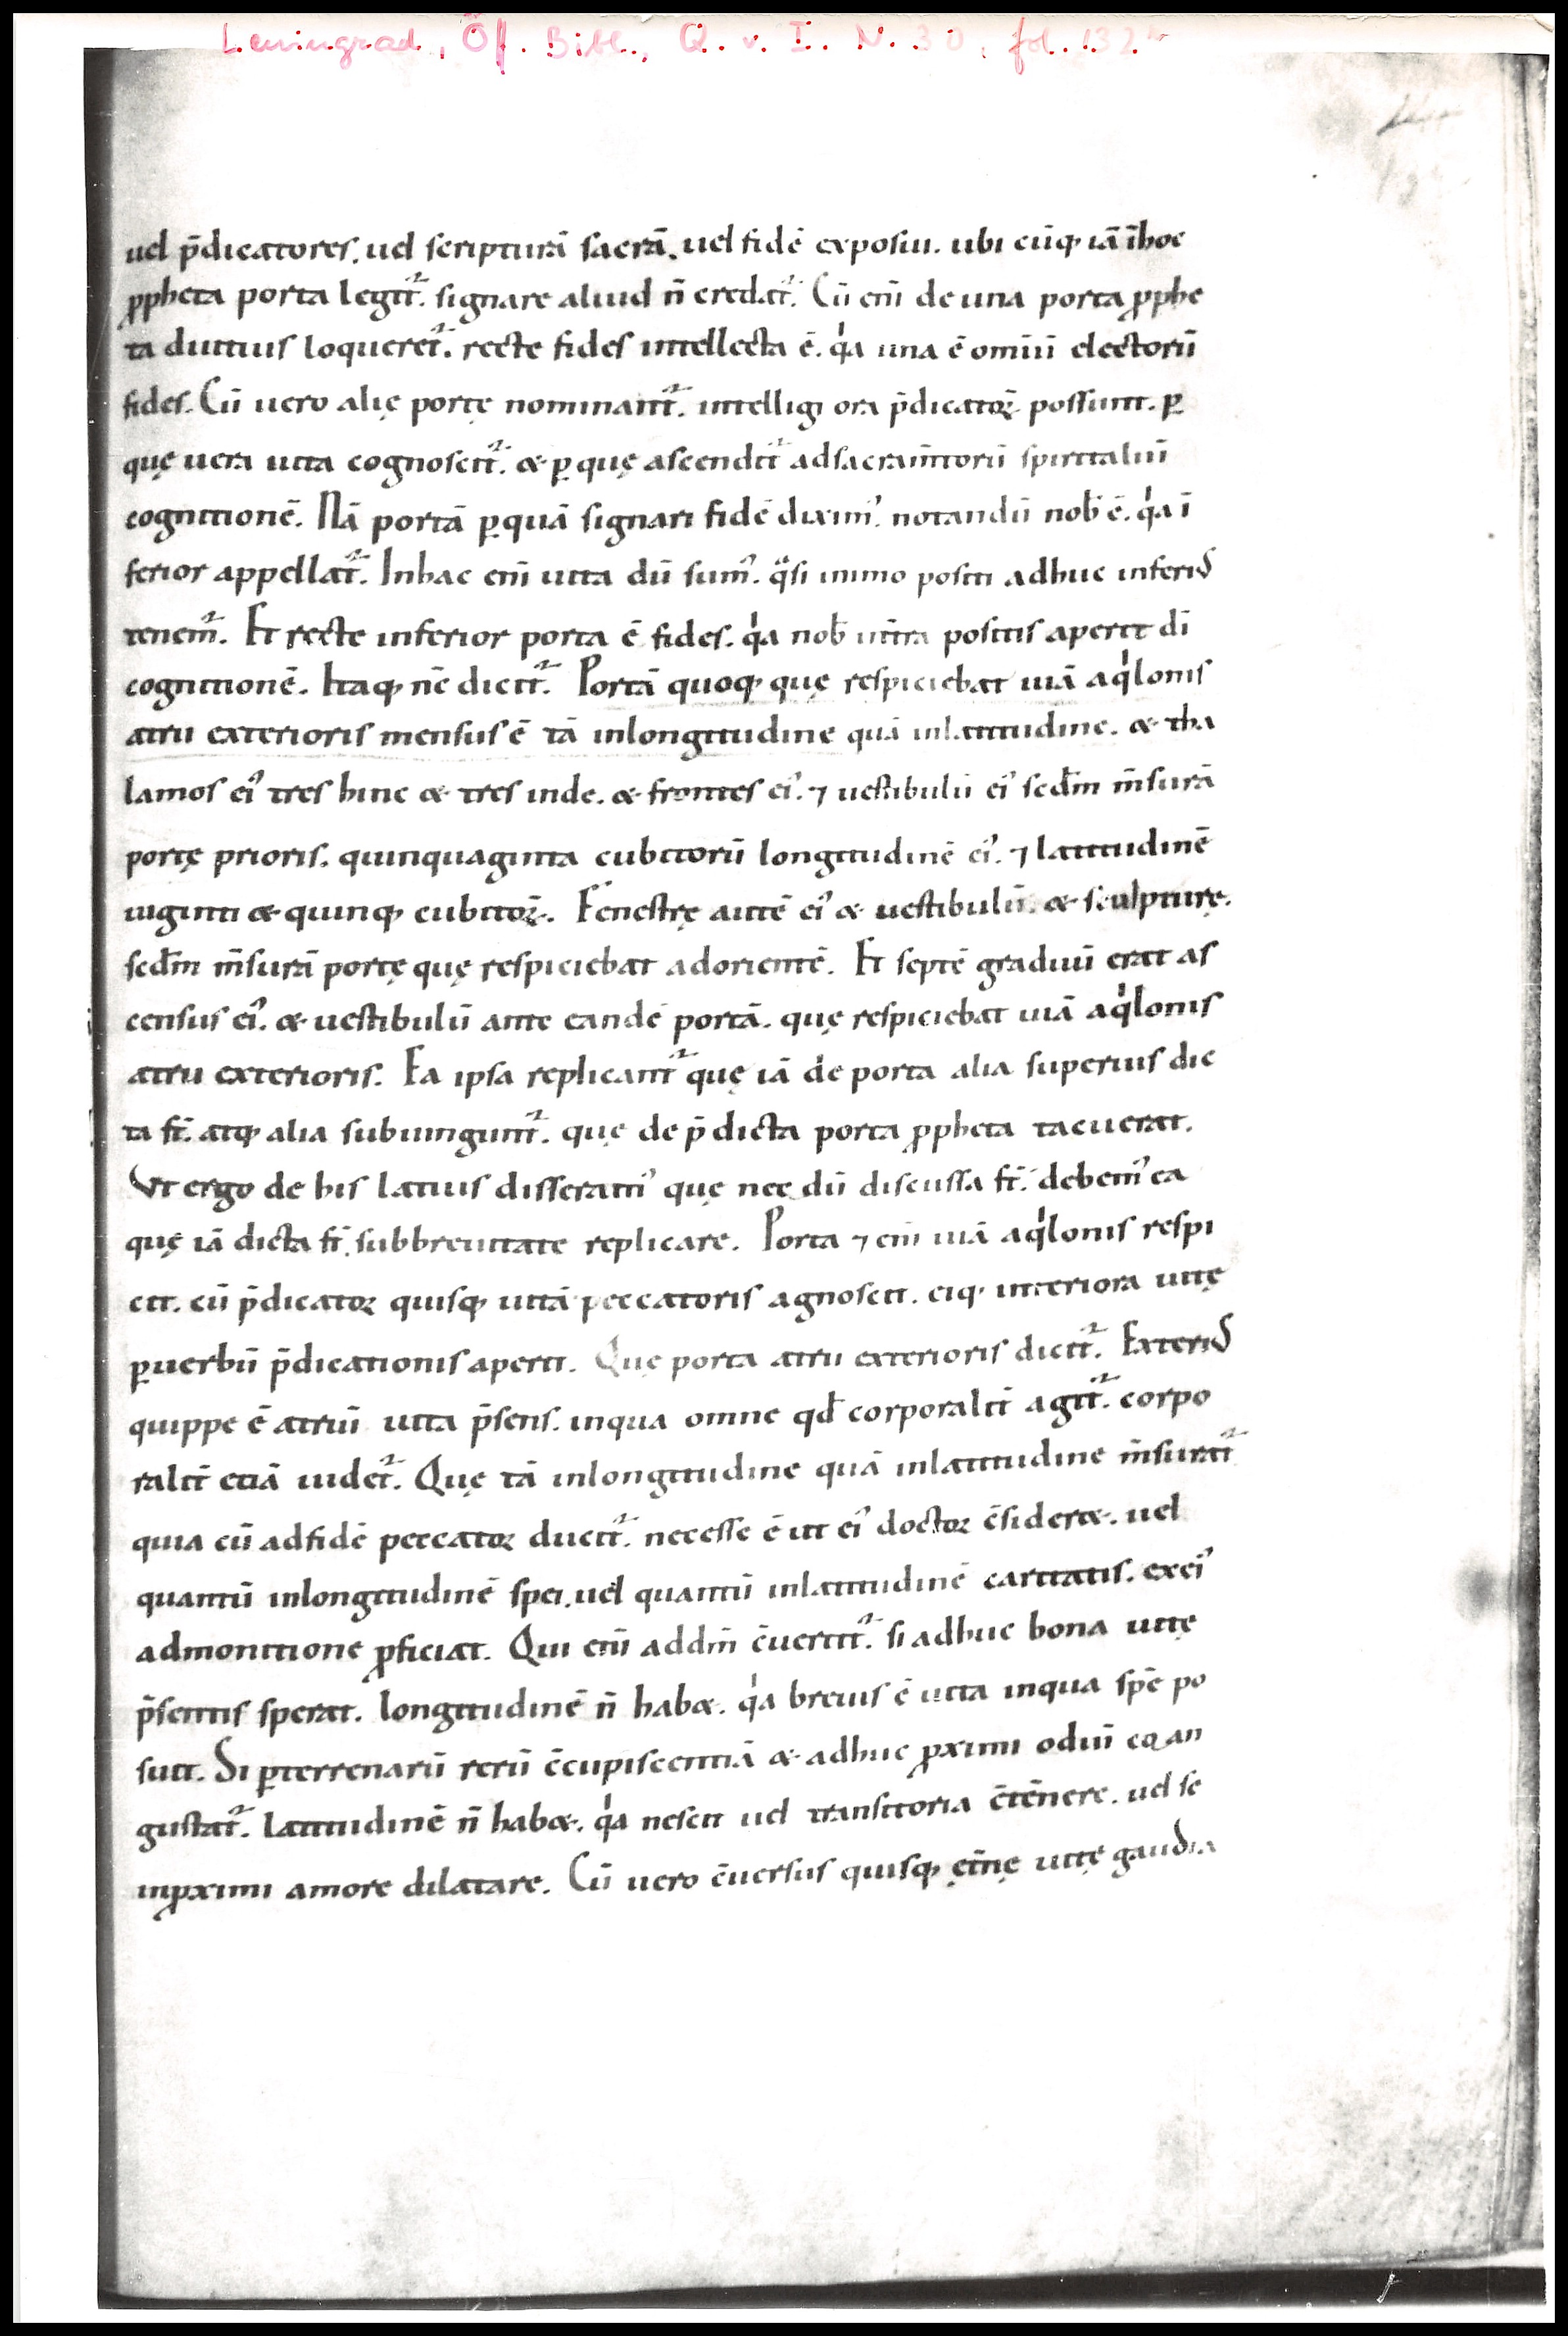 Leningrad, Öff. Bibl., Q. v. I. N. 30, fol. 132r
uel p̄dicatores. uel scripturā sacrā. uel fidē exposui. ubi cūq; iā īhoc
ꝓpheta porta legit᷑. signare aliud n̄ credat᷑. Cū eni̅ de una porta ꝓphe
ta diutius loqueret᷑. recte fides intellecta ē. qͥa una ē omniū electorū
fides. Cū uero alię portę nominant᷑. intelligi ora p̄dicatoꝝ possunt. ꝑ
quę uera uita cognoscit᷑. & ꝑ quę ascendit᷑ adsacram̄torū spiritaliū
cognitionē. Nā portā ꝑquā signari fidē diximꝰ. notandū nob̄ ē. qͥa ī
ferior appellat᷑. Inhac eni̅ uita dū sumꝰ. qͣsi inimo positi adhuc inferiꝰ
tenem᷑. Et recte inferior porta ē fides. qͥa nob̄ intra positis aperit dī
cognitionē. Itaq; nc̄ dicit᷑. Portā quoq; quę respiciebat uiā aqͥlonis
atrii exterioris mensus ē tā inlongitudine quā inlatitudine. & tha
lamos eiꝰ tres hinc & tres inde. & frontes eiꝰ. ⁊ uestibulū eiꝰ scd̄m m̄surā
portę prioris. quinquaginta cubitorū longitudinē eiꝰ. ⁊ latitudinē
uiginti & quinq; cubitoꝝ. Fenestrę autē eiꝰ & uestibulū. & sculpturę.
scd̄m m̄surā portę quę respiciebat adorientē. Et septē graduū erat as
census eiꝰ. & uestibulū ante eandē portā. quę respiciebat uiā aqͥlonis
atrii exterioris. Ea ipsa replicant᷑ quę iā de porta alia superius dic
ta st̄. atq; alia subiungunt᷑. quę de p̄dicta porta ꝓpheta tacuerat.
Vt ergo de his latius disseramꝰ quę nec dū discussa st̄. debemꝰ ea
quę iā dicta st̄. subbreuitate replicare. Porta ⁊eni̅ uiā aqͥlonis respi
cit. cū p̄dicator quisq; uitā peccatoris agnoscit. eiq; interiora uitę
ꝑuerbū p̄dicationis aperit. Quę porta atrii exterioris dicit᷑. Exteriꝰ
quippe ē atriū uita p̄sens. inqua omne qd̄ corporalit̄ agit᷑. corpo
ralit̄ etiā uidet᷑. Quę tā inlongitudine quā inlatitudine m̄surat᷑
quia cū adfidē peccator ducit᷑. necesse ē ut eiꝰ doctor c̄sideret. uel
quantū inlongitudinē spei. uel quantū inlatitudinē caritatis. exeiꝰ
admonitione ꝓficiat. Qui eni̅ addm̄ c̄uertit᷑. si adhuc bona uitę
p̄sentis sperat. longitudinē n̄ hab&. qͥa breuis ē uita inqua spē po
suit. Si ꝑterrenarū rerū c̄cupiscentiā & adhuc ꝓximi odiū coan
gustat᷑. latitudinē n̄ hab&. qͥa nescit uel transitoria c̄tēnere. uel se
inꝓximi amore dilatare. Cū uero c̄uersus quisq; ęt̄nę uitę gaudia